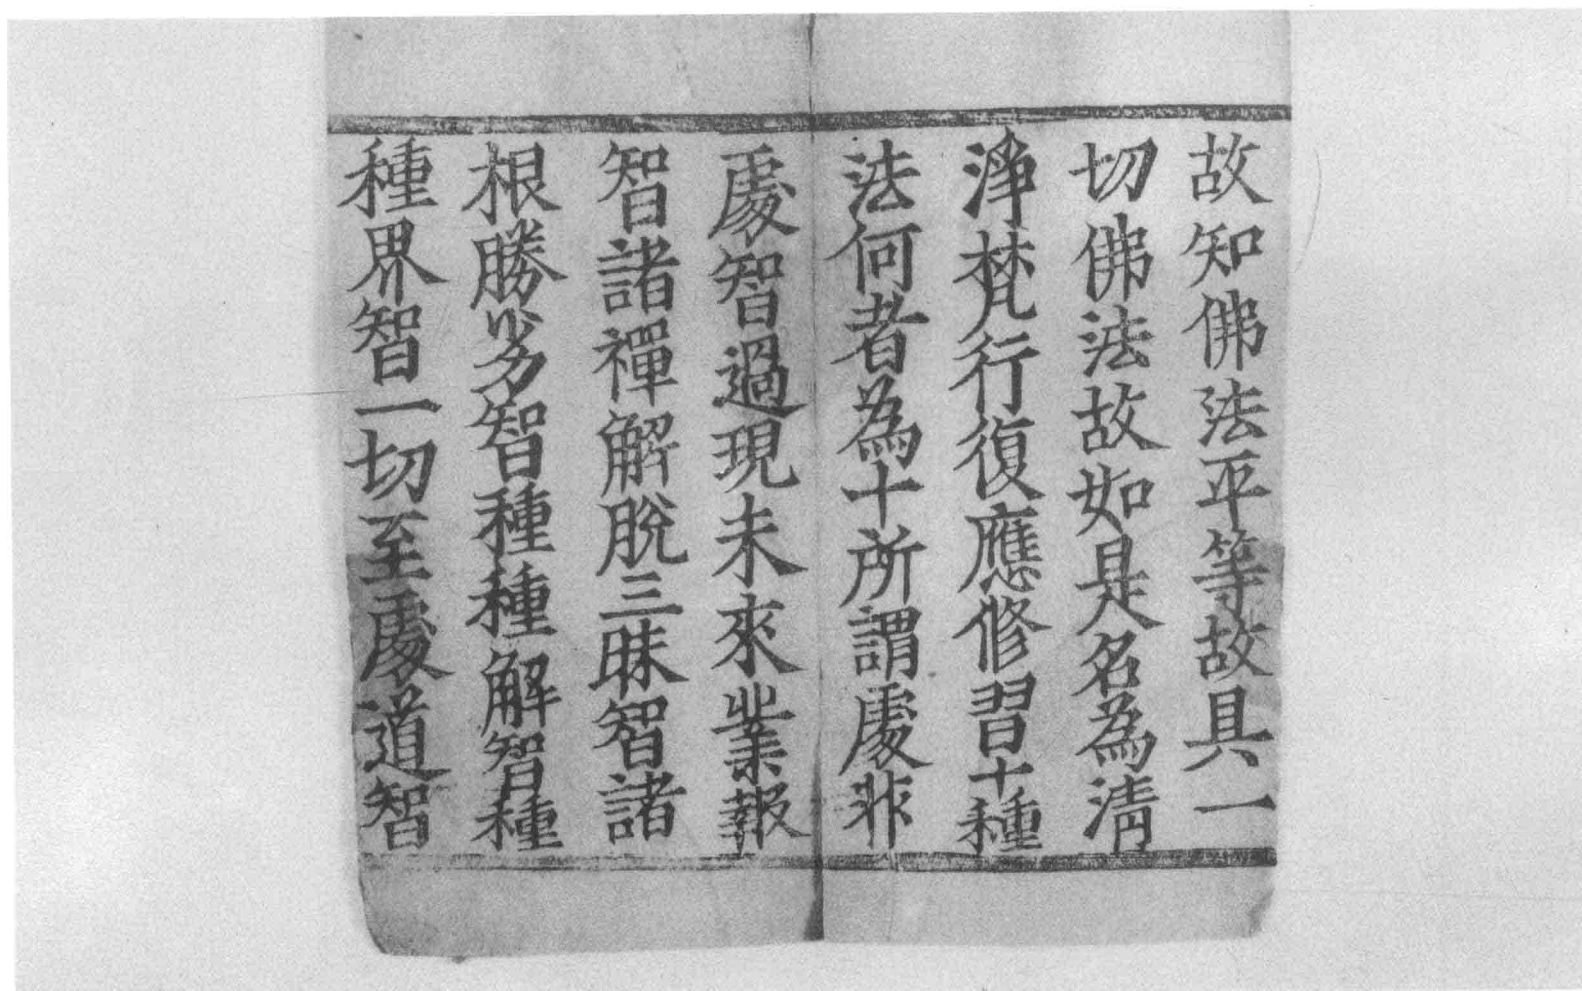 故知佛法平等故具一
切佛法故如是名為清
淨梵行復應修習十種
法何者為十所謂處非
處智過現未來業報
智諸禪解脫三昧智諸
根勝劣智種種解智種
種界智一切至處道智